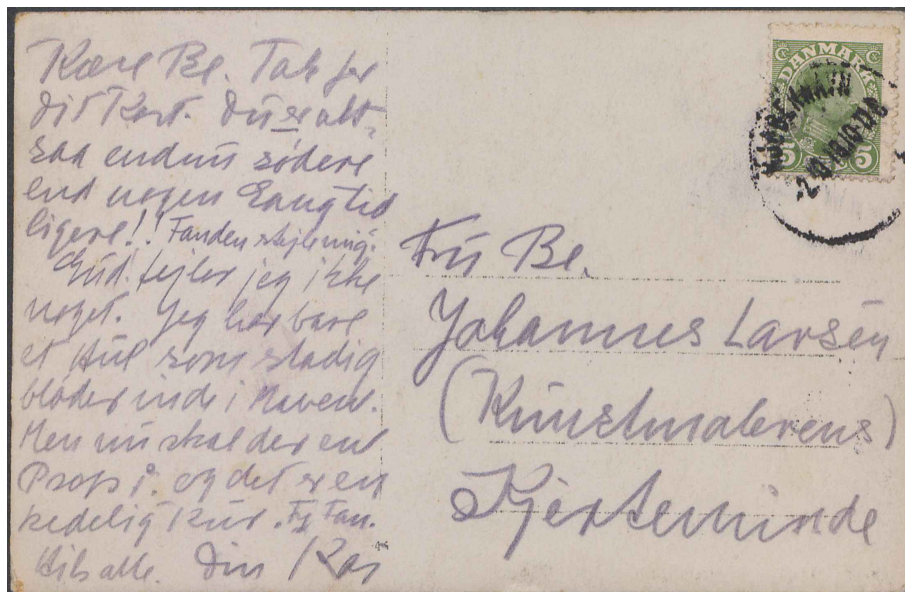 Kære Be. Tak for
dit Kort. Du er alt-
saa endnu sødere
end nogen Gang tid
ligere!! Fanden stejle mig.
Gud. fejler jeg ikke
noget. Jeg har bare
et Hul som stadig
bløder inde i Maven.
Men nu skal der en
Prop i. og det er en
kedelig Kur. Fy Fan.
Hils alle. Din Kai
DANMARK
5 5
KJØBENHAVN
Fru Be.
Johannes Larsen
(Kunstmalerens)
Kjerteminde